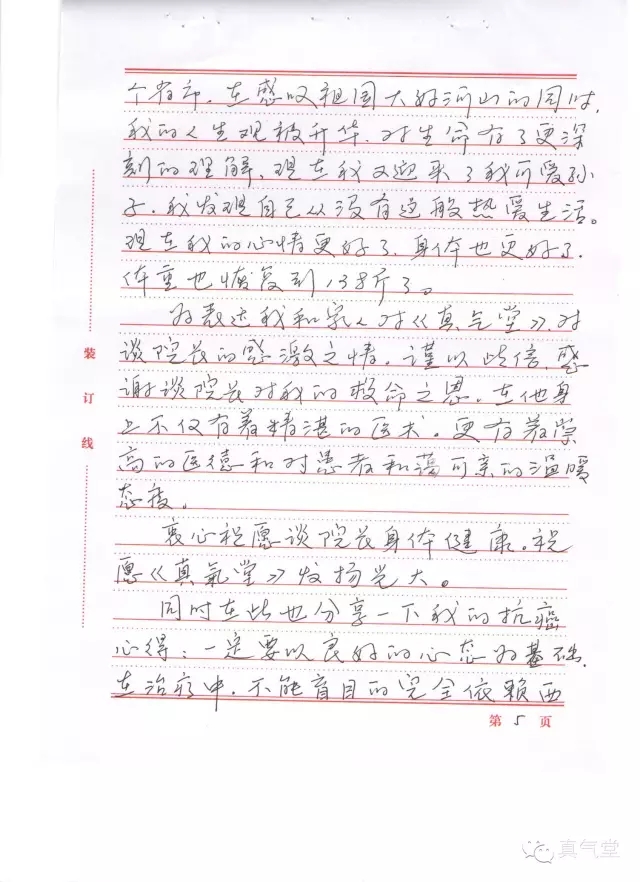 个省市，在感叹祖国大好河山的同时，
我的人生观被升华，对生命有了更深
刻的理解，现在我又迎来了我可爱孙
子，我发现自己从没有这般热爱生活。
现在我的心情更好了，身体也更好了，
体重也恢复到138斤了。
为表达我和家人对《真气堂》，对
谈院长的感激之情，谨以此信，感
谢谈院长对我的救命之恩，在他身
上不仅有着精湛的医术，更有着崇
高的医德和对患者和蔼可亲的温暖
态度。
衷心祝愿谈院长身体健康，祝
愿《真氣堂》发扬光大。
同时在此也分享一下我的抗癌
心得：一定要以良好的心态为基础，
在治疗中，不能盲目的完全依赖西
装
订
线
第 5 页
真气堂